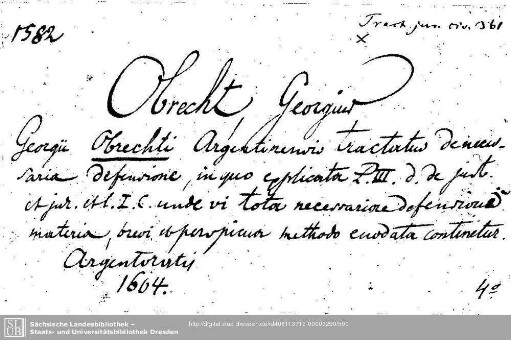 1582
Tract. jur. civ. 361
x
Obrecht, Georgius
Georgii Obrechti Argentinensis tractatus de neces-
saria defensione, in quo explicata L. III. d. de just.
et jur. et l. I. C. unde vi tota necessariae defensionis
materia, brevi et perspicua methodo enodata continetur.
Argentorati
1604.
4º
SLUB
Sächsische Landesbibliothek –
Staats- und Universitätsbibliothek Dresden